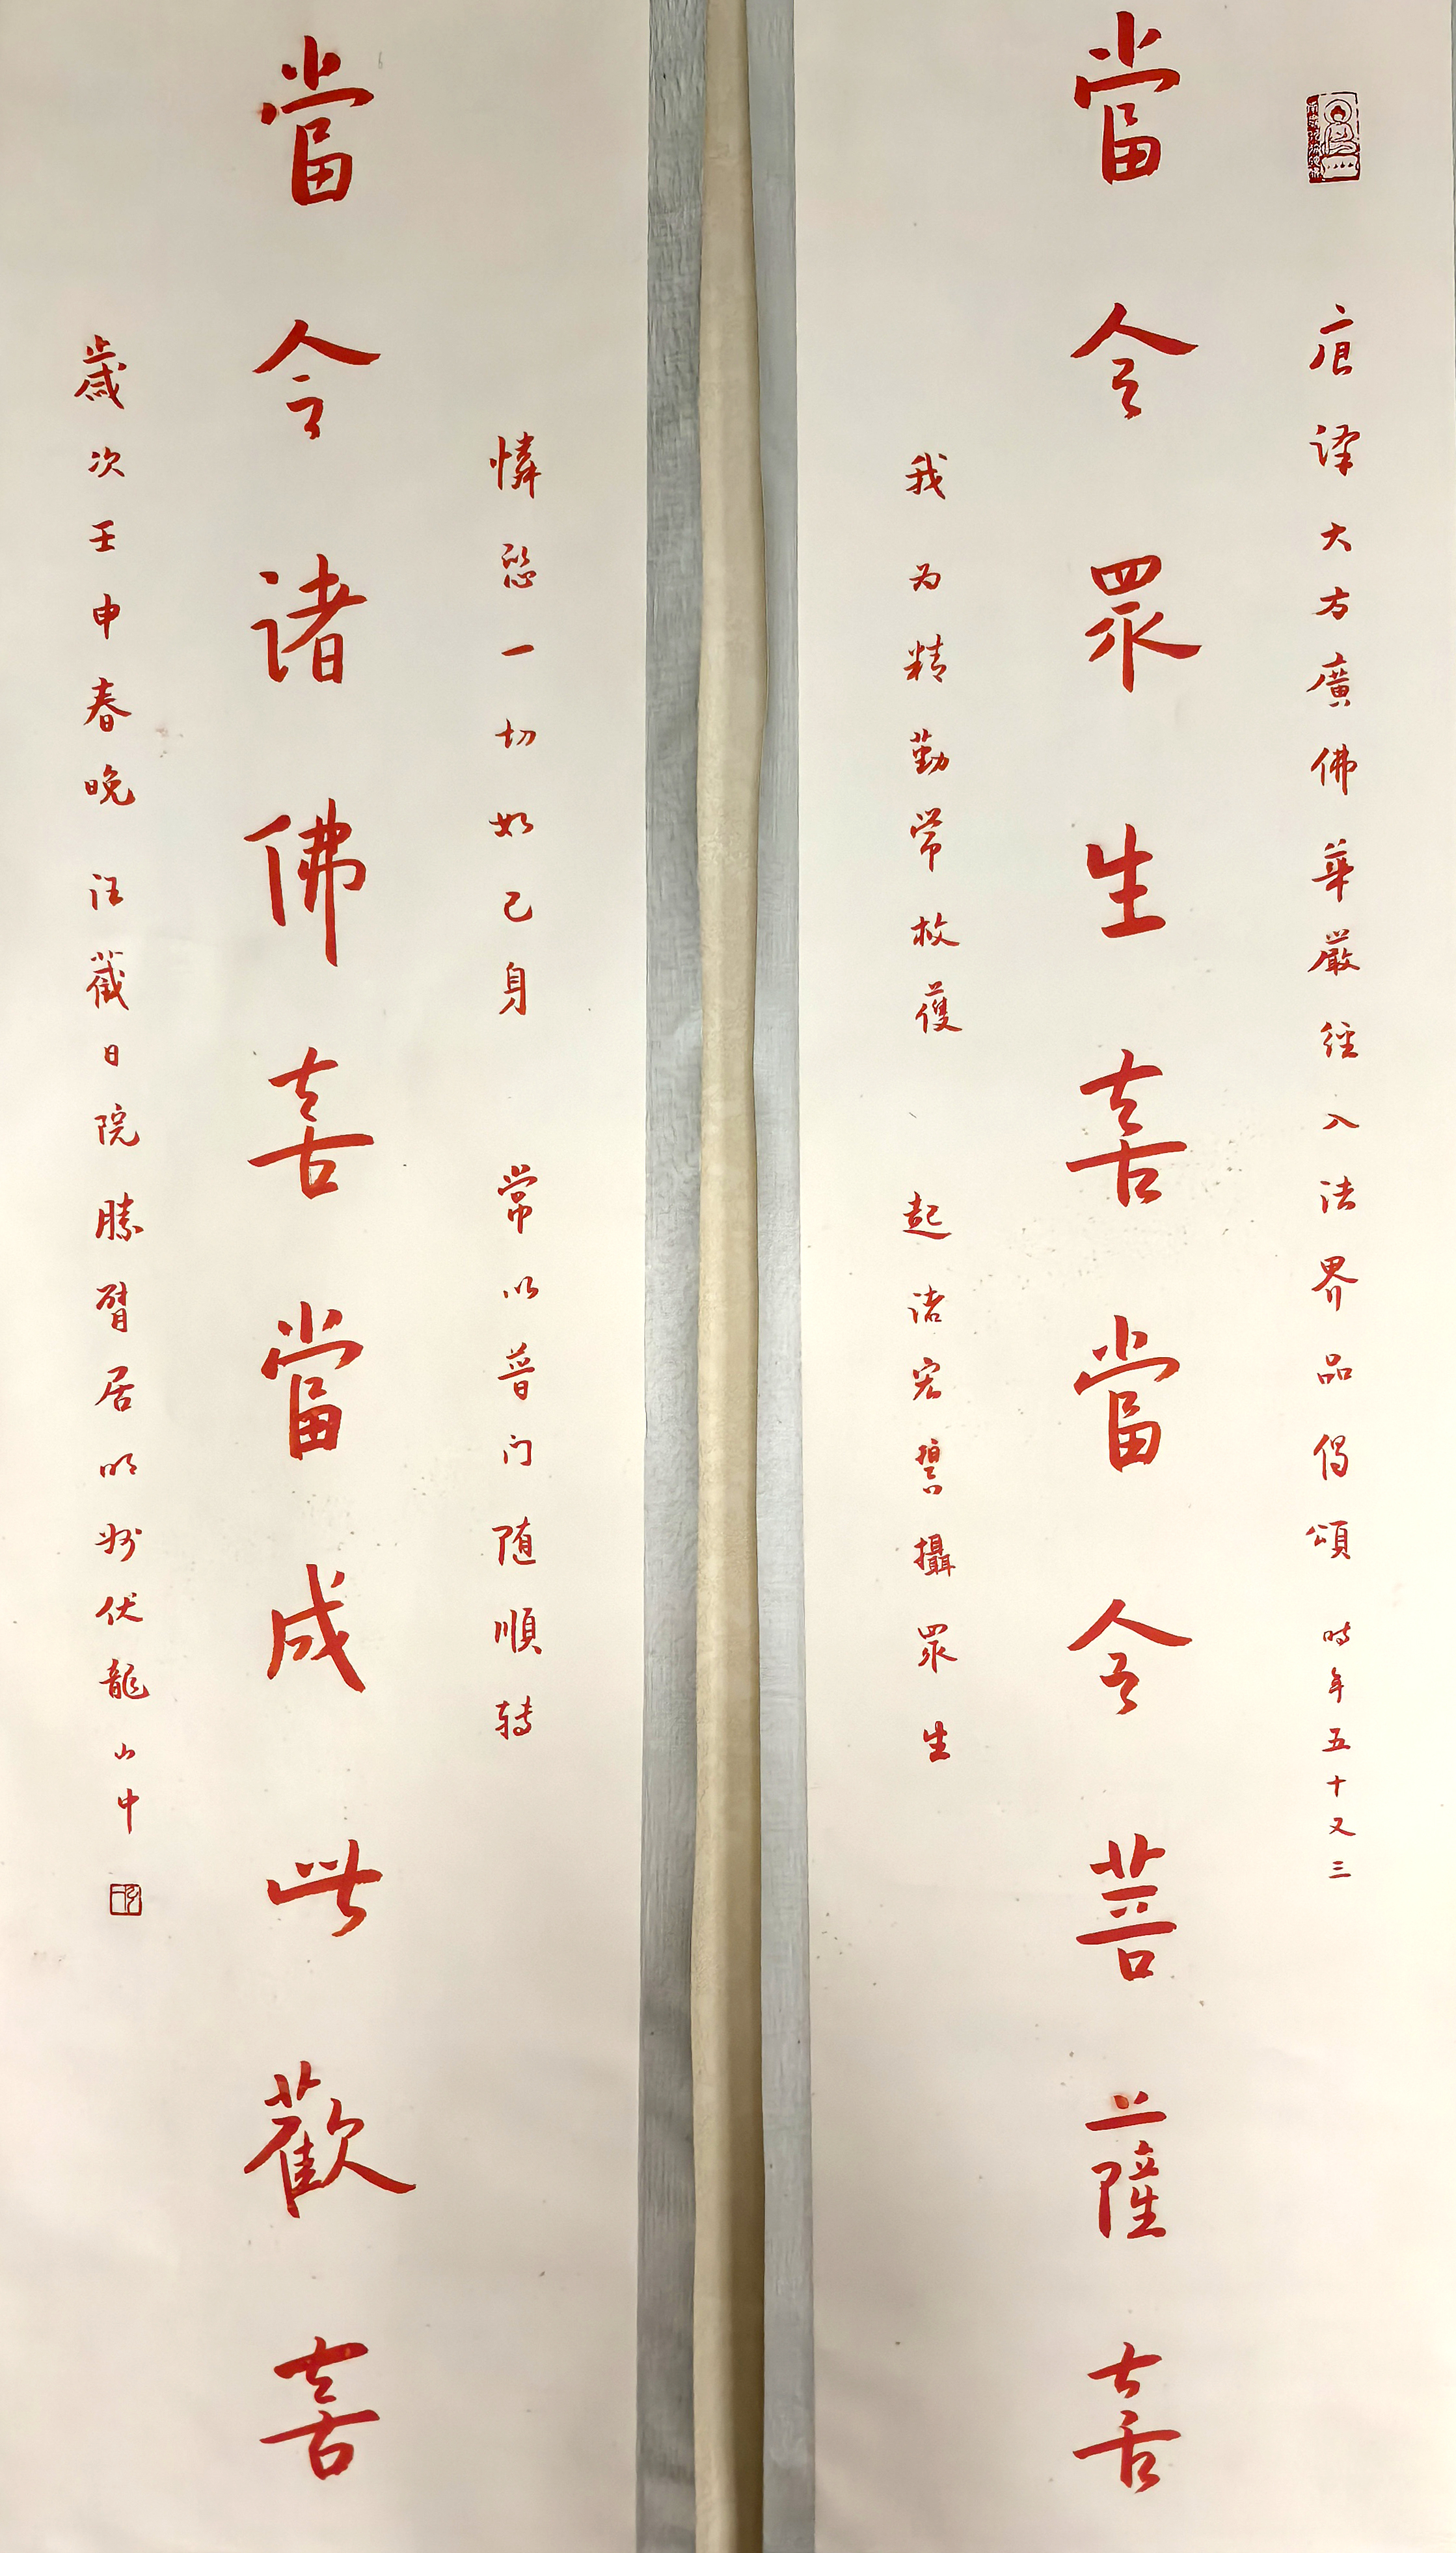 唐译大方廣佛華嚴经入法界品偈頌 時年五十又三
當令眾生喜當令菩薩喜
我为精勤常救護 起诸宏誓攝眾生
憐愍一切如己身 常以普门随順转
當令诸佛喜當成此歡喜
歲次壬申春晚 藏日院勝臂居明州伏龍山中